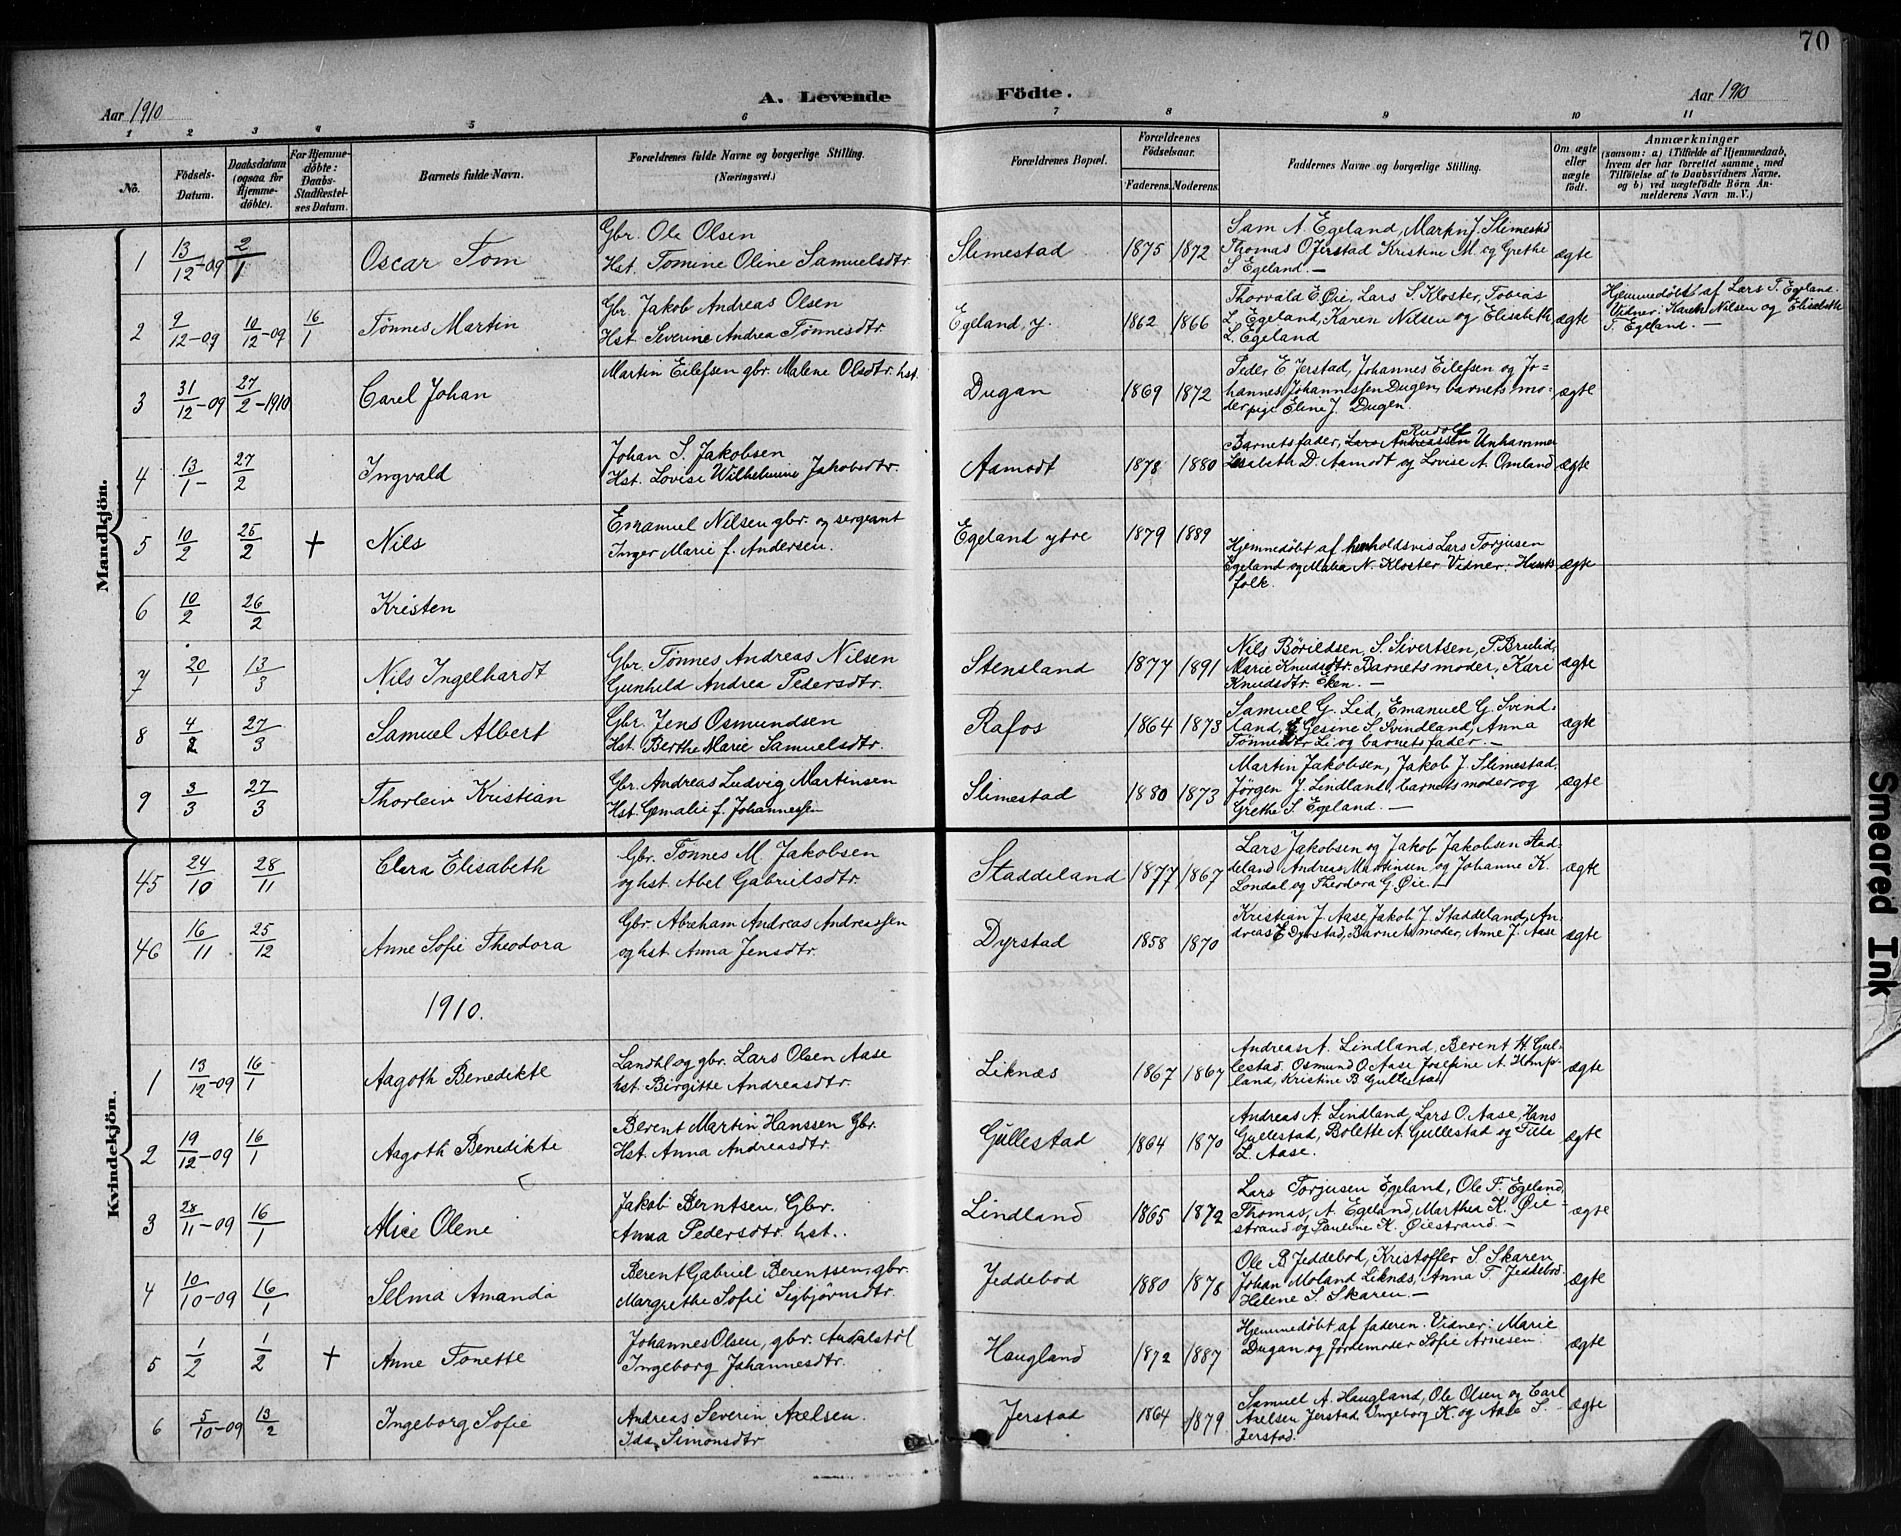 70
Aar 1910
A. Levende Födte.
Aar 1910
1 2 3 4 5 6 7 8 9 10 11
No.
Födsels-Datum.
Daabsdatum (ogsaa for Hjemme-döbte).
For Hjemme-döbte: Daabs-Stadfæstel-ses Datum.
Barnets fulde Navn.
Forældrenes fulde Navne og borgerlige Stilling.
(Næringsvei.)
Forældrenes Bopæl.
Forældrenes Födselsaar.
Faderens. Moderens.
Faddernes Navne og borgerlige Stilling.
Om ægte eller uægte födt.
Anmærkninger
(saasom: a) i Tilfælde af Hjemmedaab, hvem der har forrettet samme, med Tilföielse af to Daabsvidners Navne, og b) ved uægtefödte Börn An-melderens Navn m. V.)
Mandkjön.
1 13/12-09 2/1 Oscar Tom
Gbr. Ole Olsen
Hst. Tomine Oline Samuelsdtr.
Slimestad 1875 1872
Sam A. Egeland, Martin J. Slimestad
Thomas O Jerstad Kristine M. og Grethe
S Egeland. —
ægte
2 9/12-09 10/12-09 16/1 Tönnes Martin
Gbr. Jakob Andreas Olsen
Hst. Severine Andrea Tønnesdtr
Egeland, y. 1862 1866
Thorvald E Øie, Lars S. Kloster, Tobias
L. Egeland, Karen Nilsen og Elisabeth
L. Egeland
ægte
Hjemmedøbt af Lars T. Egeland.
Vidner: Karen Nilsen og Elisabeth
T. Egeland. —
3 31/12-09 27/2-1910 Carel Johan
Martin Eilefsen gbr. Malene Olsdtr. hst.
Dugan 1869 1872
Peder E Jerstad, Johannes Eilefsen og Jo-
hannes Johannessen Dugen, barnets mo-
der pige Eline J. Dugen.
ægte
4 13/1- 27/2 Ingvald
Johan S. Jakobsen
Hst. Lovise Wilhelmine Jakobsdtr.
Aamodt 1878 1880
Rudolf
Barnets fader, Lars Andreassen Unhammer
Lisabeth D. Aamodt og Lovise A. Omland
ægte
5 10/2 25/2 + Nils
Emanuel Nilsen gbr. og sergeant
Inger Marie f. Andersen.
Egeland ytre 1879 1889
Hjemmedøbt af henholdsvis Lars Torjusen
Egeland og Malia N. Kloster. Vidner: Husets
folk.
ægte
6 10/2 26/2 Kristen
7 20/1 13/3 Nils Ingelhardt
Gbr. Tönnes Andreas Nilsen
Gunhild Andrea Pedersdtr.
Stensland 1877 1891
Nils Børildsen, S. Sivertsen, P. Brulid,
Marie Knudsdtr. Barnets moder, Kari
Knudsdtr. Eken. —
ægte
8 4/2 27/3 Samuel Albert
Gbr. Jens Osmundsen
Hst. Berthe Marie Samuelsdtr.
Rafos 1864 1873
Samuel G. Led, Emanuel G. Svind-
land, Gesine S. Svindland, Anna
Tönnesdtr Li og barnets fader. —
ægte
9 3/3 27/3 Thorleiv Kristian
Gbr. Andreas Ludvig Martinsen
Hst. Gemalie f. Johannessen
Slimestad 1880 1873
Martin Jakobsen, Jakob J. Slimestad,
Jørgen J. Lindland, barnets moder og
Grethe S. Egeland. —
ægte
Kvindekjön.
45 24/10 28/11 Clara Elisabeth
Gbr. Tönnes M. Jakobsen
og hst. Abel Gabrielsdtr.
Staddeland 1877 1867
Lars Jakobsen og Jakob Jakobsen Stad-
deland Andreas Martinsen og Johanne K.
Londal og Theodora G. Øie.
ægte
46 16/11 25/12 Anne Sofie Theodora
Gbr. Abraham Andreas Andreassen
og hst. Anna Jensdtr.
Dyrstad 1858 1870
Kristian J. Aase, Jakob J. Staddeland, An-
dreas E Dyrstad, Barnets moder, Anne J. Aase
ægte
1910.
1 13/12-09 16/1 Aagoth Benedikte
Landhl og gbr. Lars Olsen Aase
hst. Birgitte Andreasdtr.
Liknæs 1867 1867
Andreas A. Lindland, Berent H. Gul-
lestad. Osmund O. Aase Josefine A.
land, Kristine B Gullestad
ægte
2 19/12-09 16/1 Aagoth Benedikte
Berent Martin Hanssen Gbr.
Hst. Anna Andreasdtr.
Gullestad 1864 1870
Andreas A. Lindland, Lars O. Aase, Hans
Gullestad, Bolette A. Gullestad og Tilla
L. Aase.
ægte
3 28/11-09 16/1 Alice Olene
Jakob Berntsen, Gbr.
Anna Pedersdtr. hst.
Lindland 1865 1872
Lars Torjusen Egeland, Ole T. Egeland,
Thomas, A. Egeland, Marthea K. Øie-
strand og Pauline K. Øiestrand. —
ægte
4 10/10-09 16/1 Selma Amanda
Berent Gabriel Berentsen, gbr.
Margrethe Sofie Sigbjörnsdtr.
Jeddebod 1880 1878
Ole B Jeddebod, Kristoffer S Skaren
Johan Moland Liknæs, Anna T. Jeddebod.
Helene S. Skaren. —
ægte
5 1/2 1/2 + Anne Tonette
Johannes Olsen, gbr. Andalstöl
Ingeborg Johannesdtr.
Haugland 1872 1887
Hjemmedøbt af faderen. Vidner: Marie
Dugan og Jordemoder Sofie Arnesen.
ægte
6 5/10-09 13/2 Ingeborg Sofie
Andreas Severin Axelsen.
Ida Simonsdtr
Jerstad 1864 1879
Samuel A. Haugland, Ole Olsen og Carl
Axelsen Jerstad Ingeborg K. og Aase S.
Jerstad.
ægte
Smeared Ink